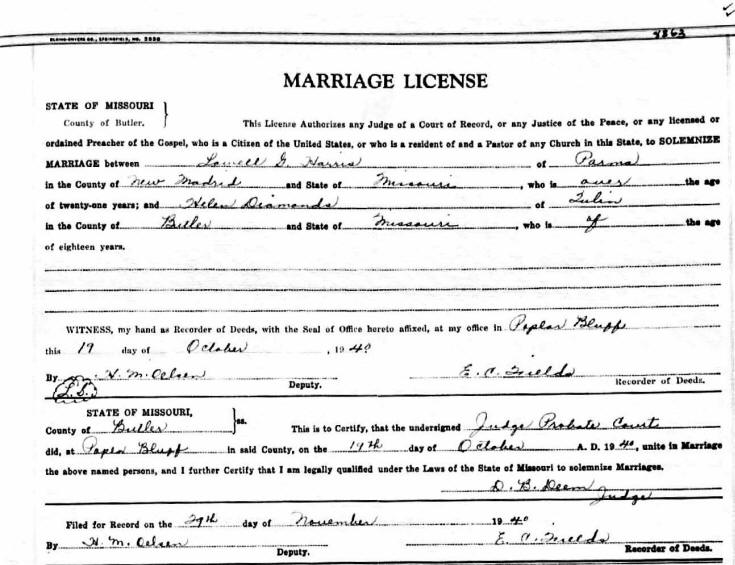 ELKINS-SWYERS CO., SPRINGFIELD, MO.
MARRIAGE LICENSE
STATE OF MISSOURI
County of Butler.
This License Authorizes any Judge of a Court of Record, or any Justice of the Peace, or any licensed or
ordained Preacher of the Gospel, who is a Citizen of the United States, or who is a resident of and a Pastor of any Church in this State, to SOLEMNIZE
MARRIAGE between Lowell G. Harris of Parma
in the County of New Madrid and State of Missouri, who is over the age
of twenty-one years; and Helen Diamonds of
in the County of Butler and State of Missouri, who is of the age
of eighteen years.
WITNESS, my hand as Recorder of Deeds, with the Seal of Office hereto affixed, at my office in Poplar Bluff
this 19 day of October, 1940
By H. M. Oelsen Deputy. E. C. Fields Recorder of Deeds.
(L.S.)
STATE OF MISSOURI,
County of Butler ss. This is to Certify, that the undersigned Judge Probate Court
did, at Poplar Bluff in said County, on the 19th day of October A. D. 1940, unite in Marriage
the above named persons, and I further Certify that I am legally qualified under the Laws of the State of Missouri to solemnize Marriages.
D. B. Deem
Judge
Filed for Record on the 29th day of November 1940
By H. M. Oelsen Deputy. E. C. Fields Recorder of Deeds.